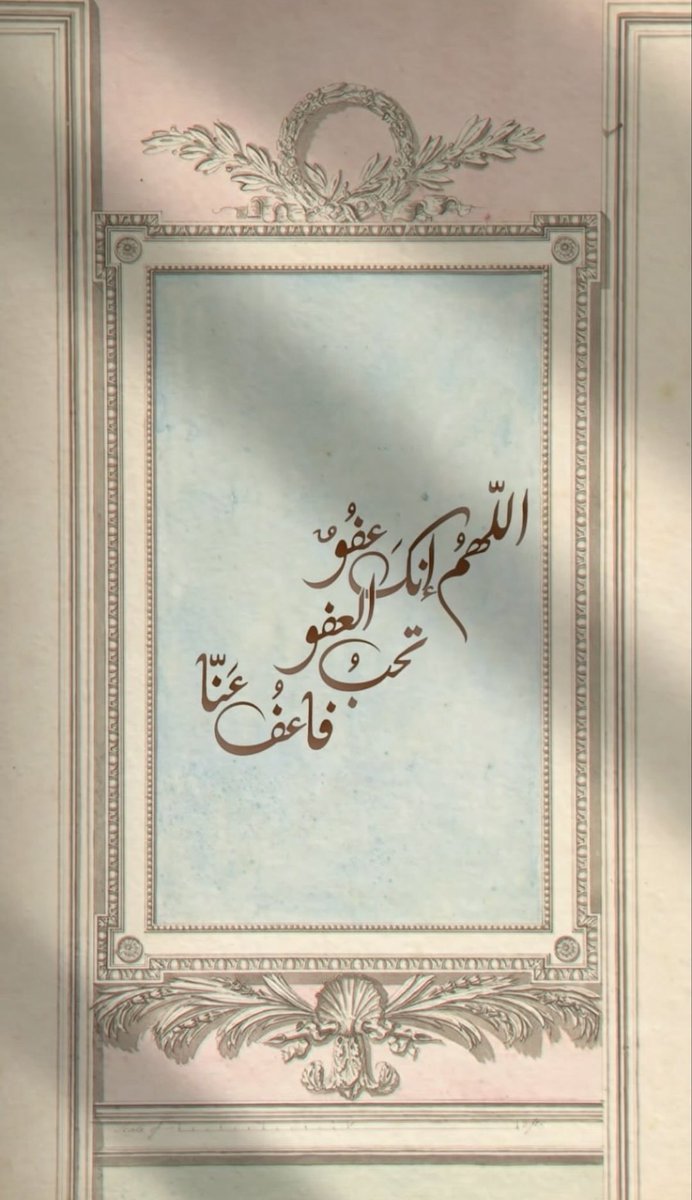 اللّهمُ إنكَ عفوٌ
تحبُ العفو
فاعفُ عَنّا